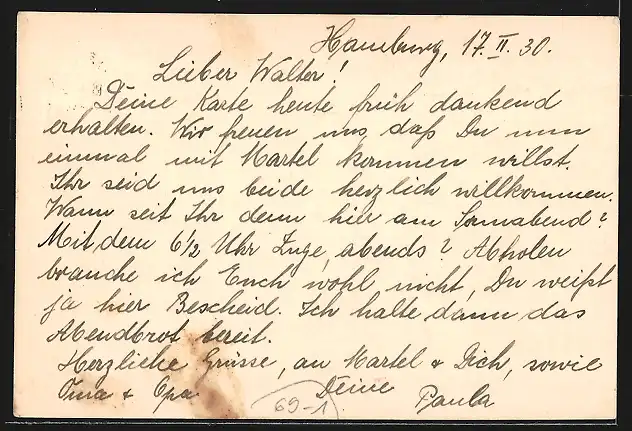 Hamburg, 17. II. 30.
Lieber Walter!
Deine Karte heute früh dankend
erhalten. Wir freuen uns, daß Du nun
einmal mit Martel kommen willst.
Ihr seid uns beide herzlich willkommen.
Wann seit Ihr denn hier am Sonnabend?
Mit dem 6 1/2 Uhr Zuge, abends? Abholen
brauche ich Euch wohl nicht, Du weißt
ja hier Bescheid. Ich halte dann das
Abendbrot bereit.
Herzliche Grüsse, an Martel + Dich, sowie
Oma + Opa Deine Paula
69-1